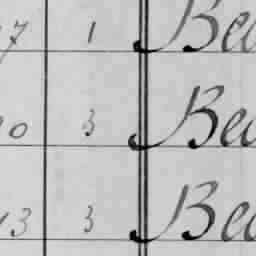 7 1 Bea
0 3 Bea
13 3 Bea